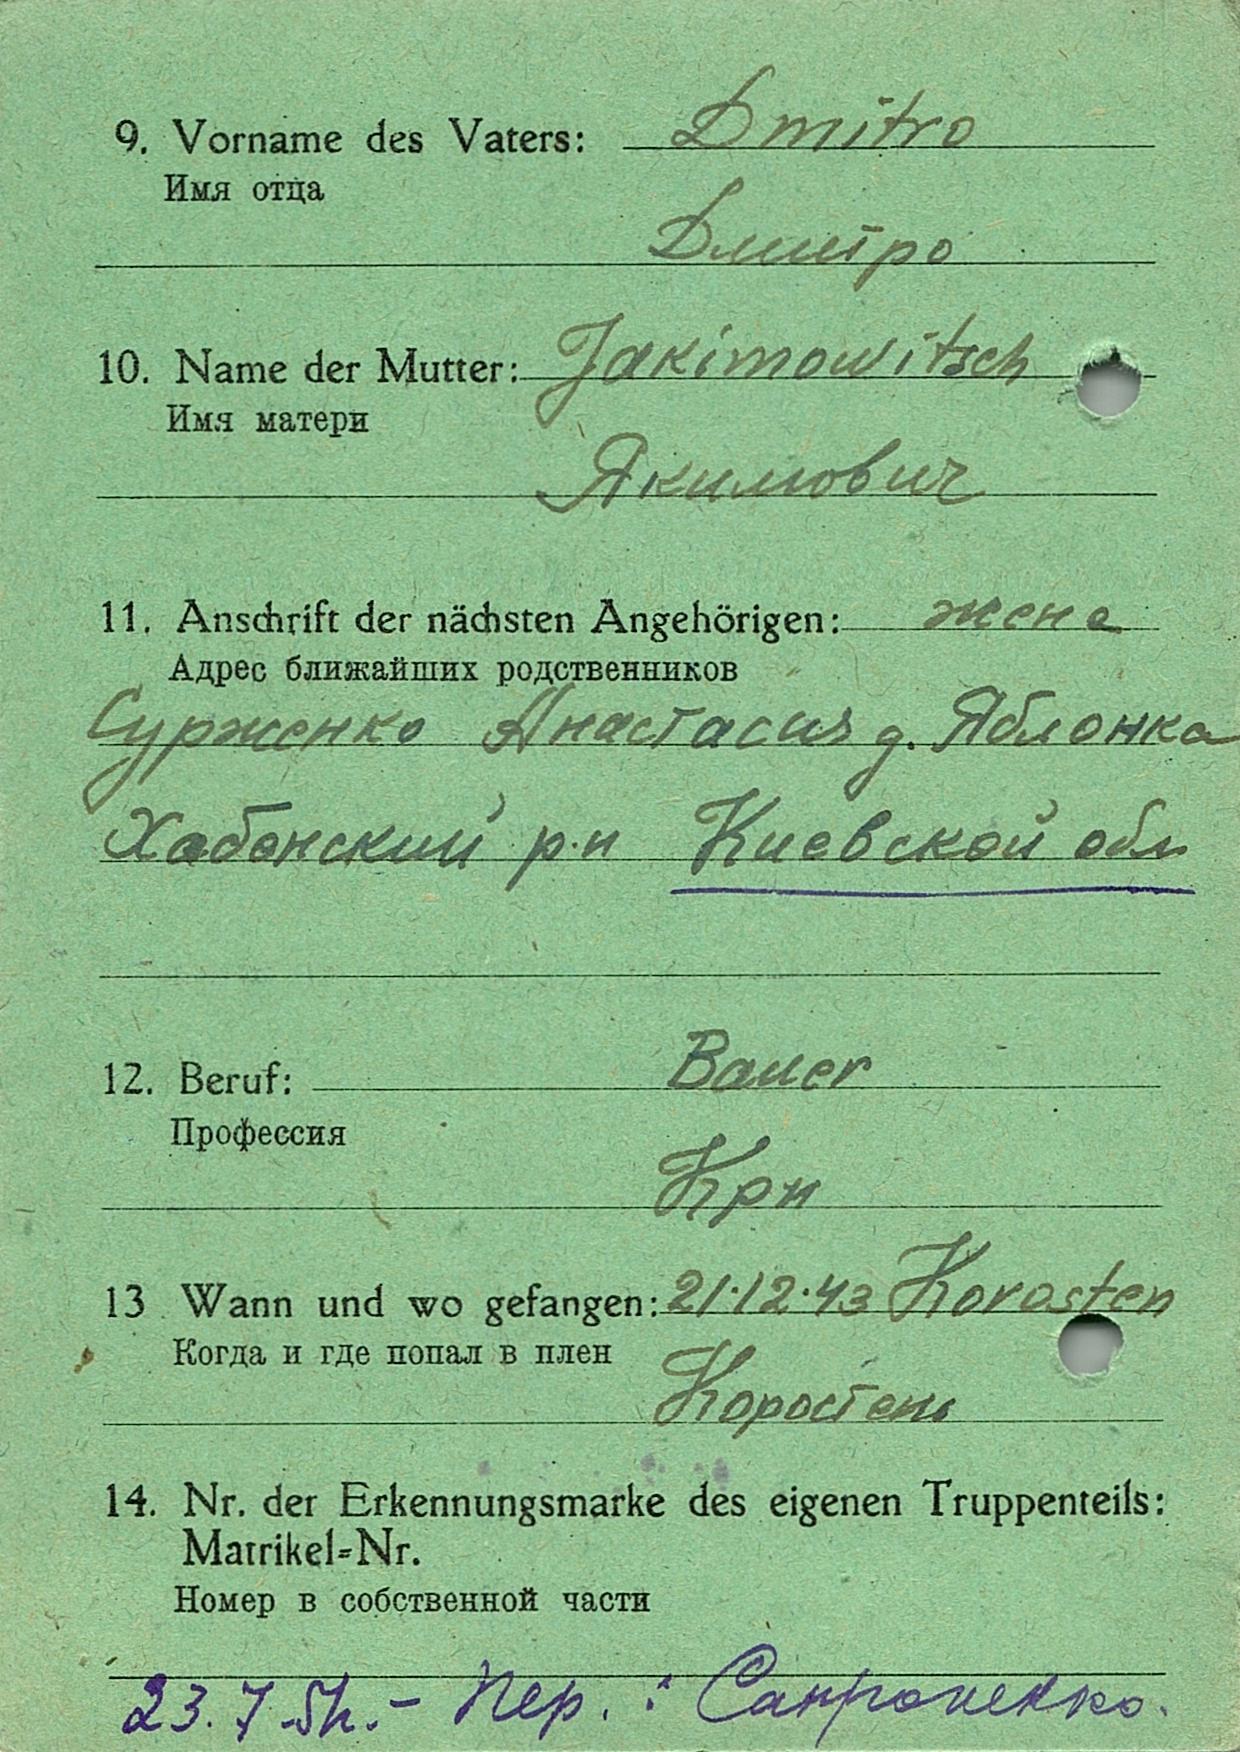 9. Vorname des Vaters: Dmitro
Имя отца
Дмитро
10. Name der Mutter: Jakimowitsch
Имя матери
Якимович
11. Anschrift der nächsten Angehörigen: жена
Адрес ближайших родственников
Сурженко Анастасия д. Яблонка
Хабенский р-н Киевской обл
12. Beruf: Bauer
Профессия
Крн
13 Wann und wo gefangen: 21.12.43 Korosten
Когда и где попал в плен
Коростень
14. Nr. der Erkennungsmarke des eigenen Truppenteils:
Matrikel=Nr.
Номер в собственной части
23.7. - Пер.: Сапроненко.